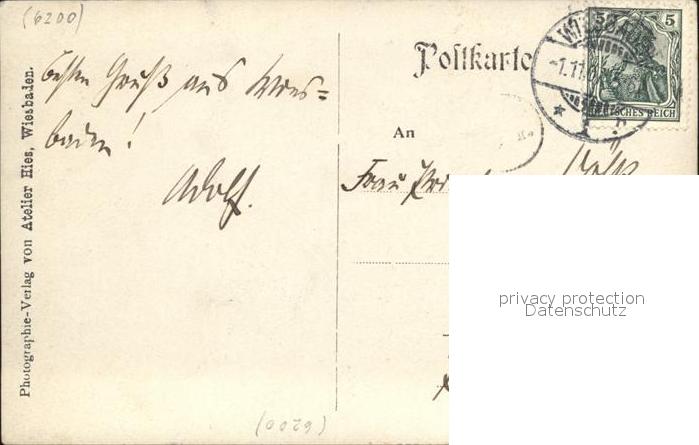 (6200)
besten Gruß aus Wies=
baden!
Adolf.
Photographie-Verlag von Atelier Hies, Wiesbaden.
Postkarte
5
WIESBADEN
-1.11.
DEUTSCHES REICH
An
Frau
privacy protection
Datenschutz
(6200)